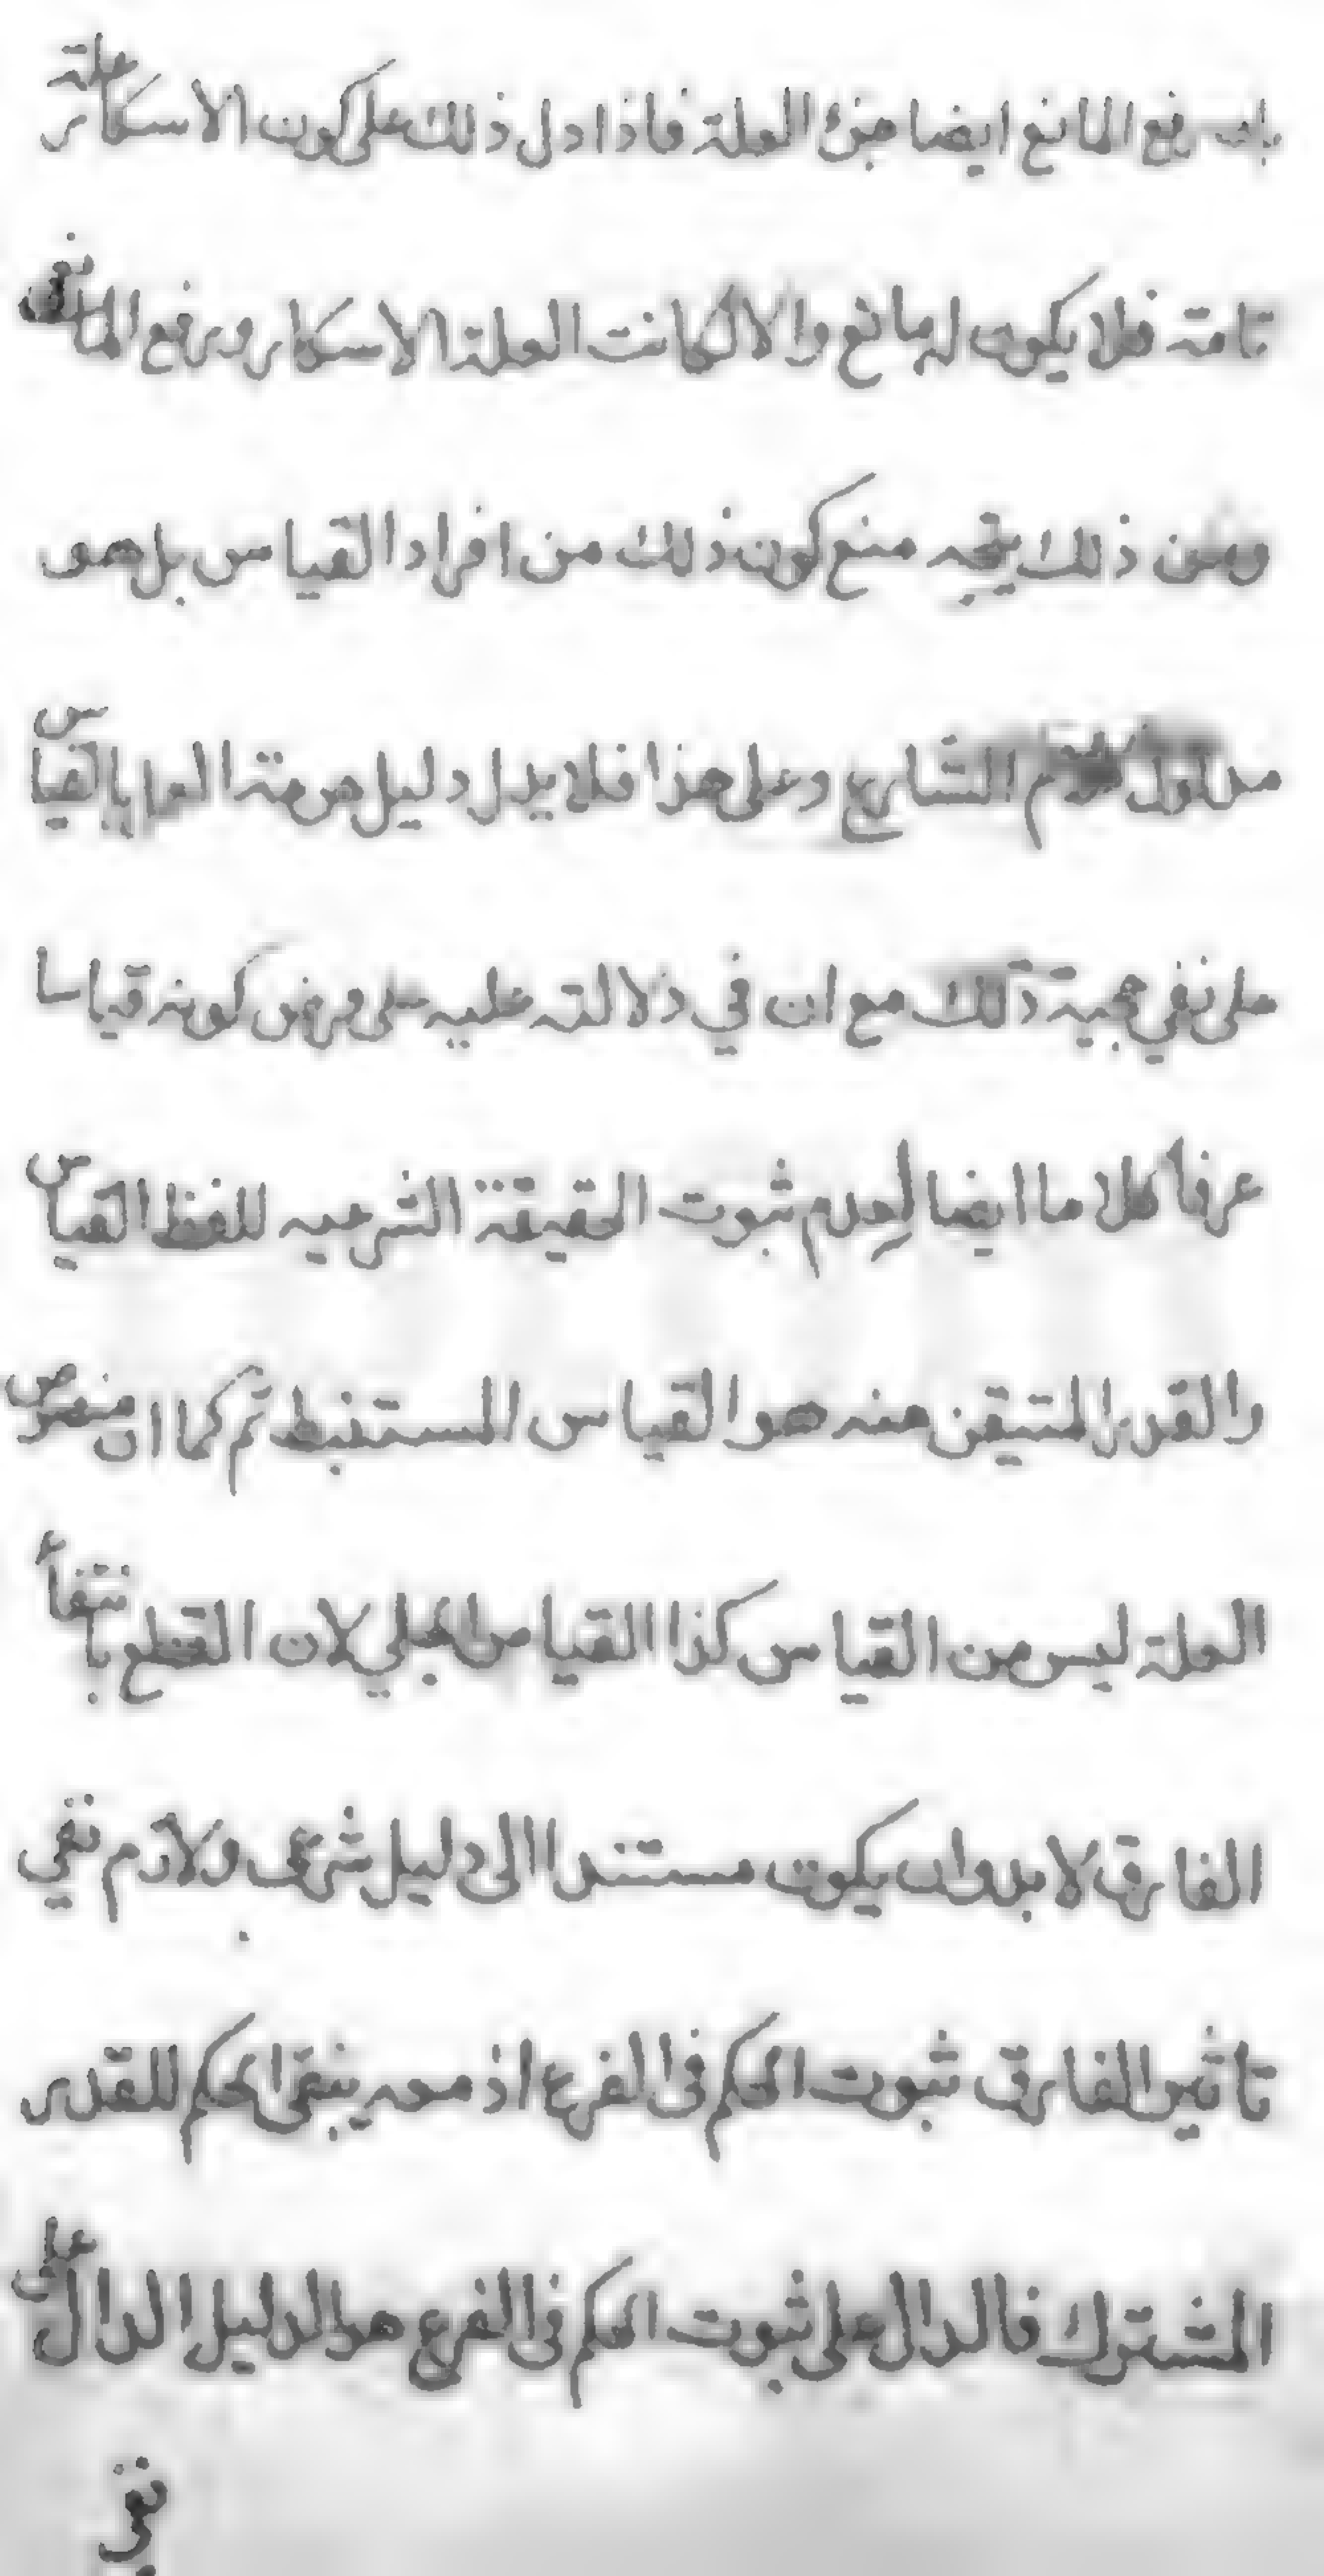 رفع المانع ايضا جزء العلة فاذا دل ذلك على كون الاسكار علة
تامة فلا يكون له مانع والا لكانت العلة الاسكار ورفع المانع
ومن ذلك يتجه منع كون ذلك من افراد القياس بل هو
مدلول كلام الشارع وعلى هذا فلا يدل دليل حرمة العمل بالقياس
على نفي حجية ذلك مع ان في دلالته عليه على فرض كونه قياسا
عرفا كلاما ايضا لعدم ثبوت الحقيقة الشرعيه للفظ القياس
والقدر المتيقن منه هو القياس المستنبط ثم كما ان منصوص
العلة ليس من القياس كذا القياس الجلي لان القطع بانتفاء
الفارق لا بد وان يكون مستندا الى دليل شرعى ولازم نفي
تاثير الفارق ثبوت الحكم فى الفرع اذ معه ينفى الحكم للقدر
المشترك فالدال على ثبوت الحكم فى الفرع هو الدليل الدال على
نفى